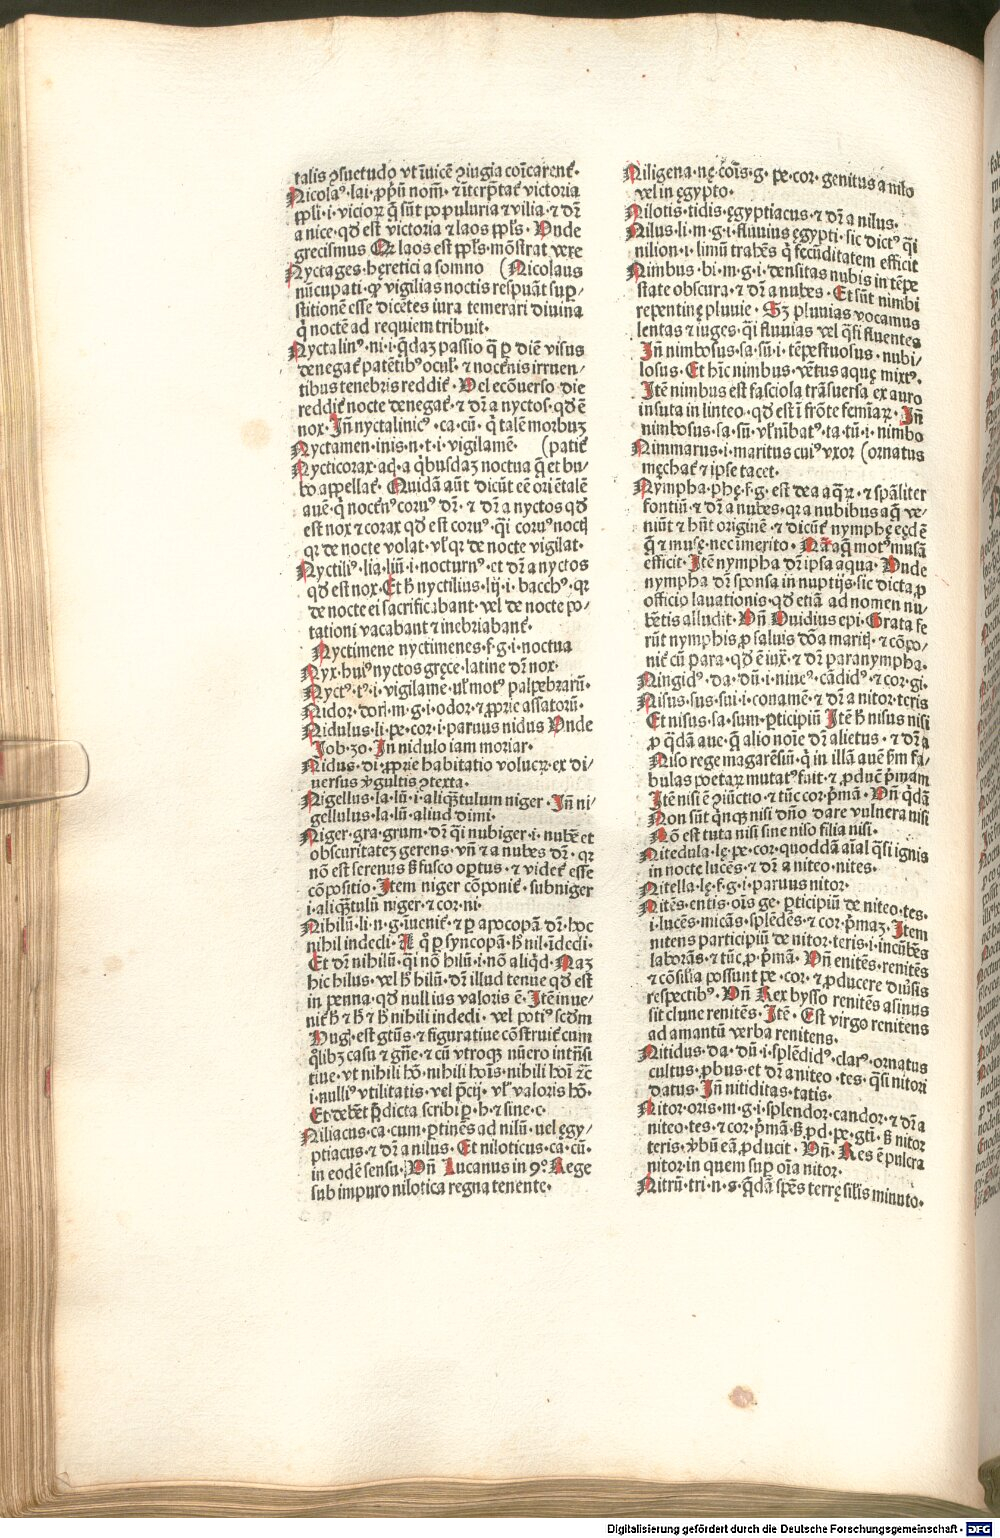 talis ꝯsuetudo vt īuicē ꝯiugia coīcarent᷑.
Nicolaꝰ.lai.ꝓpriū nomē.⁊ īterp̄tat᷑ victoria
ppl̄i.i.vicioꝝ q̄ sūt populuria ⁊ vilia.⁊ dr̄
a nice.qd̓ est victoria ⁊ laos ppl̄s. Unde
grecismus Et laos est ppl̄s mōstrat vere
Nyctages.hęretici a somno (Nicolaus
nūcupati.ꝙ vigilias noctis respuāt suꝑ-
stitionē esse dicētes iura temerari diuina
q̄ noctē ad requiem tribuit.
Nyctalinꝰ.ni.i.q̄daꝫ passio q̄ ꝑ diē visus
denegat᷑ patētibꝰ ocul᷑.⁊ nocēnis irruen-
tibus tenebris reddit᷑. Vel ecōuerso die
reddit᷑ nocte denegat᷑.⁊ dr̄ a nyctos.qd̓ ē
nox. In̄ nyctalinicꝰ.ca.cū.q̄ talē morbuꝫ
Nyctamen.inis.n.t.i.vigilamē. (patit᷑
Nycticorax.aq̄.a q̇busdaꝫ noctua q̄ et bu-
bo appellat᷑. Quidā aūt dicūt eē ori ētalē
auē.q̄ nocēnꝰ coruꝰ dr̄.⁊ dr̄ a nyctos qd̓
est nox ⁊ corax qd̓ est coruꝰ.q̄i coruꝰ nocꝭ
qꝛ de nocte volat.vl̓ qꝛ de nocte vigilat.
Nyctiliꝰ.lia.liū.i.nocturnꝰ.et dr̄ a nyctos
qd̓ est nox. Et h̓ nyctilius.lij.i.bacchꝰ.qꝛ
de nocte ei sacrificabant.vel de nocte po-
tationi vacabant ⁊ inebriabant᷑.
Nyctimene nyctimenes.f.g.i.noctua
Nyx.huiꝰ nyctos gręce.latine dr̄ nox.
Nyctꝰ.tꝰ.i.vigilame.vl̓ motꝰ palpebrarū.
Nidor.dori.m.g.i.odor.⁊ ꝓprie assatorū.
Nidulus.li.pe.cor.i.paruus nidus Unde
Job.30. In nidulo iam moriar.
Nidus.di.ꝓprie habitatio volucꝝ.ex di-
uersus v̓gultis ꝯtexta.
Nigellus.la.lū.i.aliqꝫtulum niger. In̄ ni-
gellulus.la.lū.aliud dimi.
Niger.gra.grum.dr̄ q̄i nubiger.i.nubē et
obscuritateꝫ gerens.vn̄ ⁊ a nubes dr̄.qꝛ
nō est serenus ß fusco oꝑtus.⁊ videt᷑ esse
cōpositio. Item niger cōponit᷑.subniger
i.aliqꝫtulū niger.⁊ cor.ni.
Nihilū.li.n.g.īuenit᷑.⁊ ꝑ apocopā dr̄.hoc
nihil indecli. Et q̇̄ ꝑ syncopā.h̓ nil.īdecli.
Et dr̄ nihilū.q̄i nō hilū.i.nō aliqd̓. Naꝫ
hic hilus.vel h̓ hilū.dr̄ illud tenue qd̓ est
in penna.qd̓ nullius valoris ē. Itē inue-
nit᷑ h̓ ⁊ h̓ ⁊ h̓ nihili indecli.vel potiꝰ scd̓m
Hug.est gtūs.⁊ figuratiue cōstruit᷑ cum
q̄libꝫ casu ⁊ gn̄e.⁊ cū vtroqꝫ nūero intn̄si
tiue.vt nihili hō.nihili hoīs.nihili hoī ⁊c̄
i.nulliꝰ vtilitatis.vel p̄cij.vl̓ valoris hō.
Et debet p̄dicta scribi ꝑ.h.⁊ sine.c.
Niliacus.ca.cum.ꝑtinēs ad nilū.uel ęgy-
ptiacus.⁊ dr̄ a nilus. Et niloticus.ca.cū.
in eodē sensu. Vn̄ Lucanus in 9°. Rege
sub impuro nilotica regna tenente.
Niligena.nę.cōis.g.pe.cor.genitus a nilo
vel in ęgypto.
Nilotis.tidis.ęgyptiacus.⁊ dr̄ a nilus.
Nilus.li.m.g.i.fluuius ęgypti.sic dictꝰ q̄i
nilion.i.limū trahēs q̄ fecūditatem efficit
Nimbus.bi.m.g.i.densitas nubis in tēpe
state obscura.⁊ dr̄ a nubes. Et sūt nimbi
repentinę pluuie. Sꝫ pluuias vocamus
lentas ⁊ iuges.q̄i fluuias vel q̄si fluentes
In̄ nimbosus.sa.sū.i.tēpestuosus.nubi-
losus. Et hīc nimbus.vētus aquę mixtꝰ.
Itē nimbus est fasciola trāsuersa ex auro
insuta in linteo.qd̓ est ī frōte femīaꝝ. In̄
nimbosus.sa.sū.vl̓ nībatꝰ.ta.tū.i.nimbo
Nimmarus.i.maritus cuiꝰ vxor (ornatus
męchat᷑ ⁊ ipse tacet.
Nympha.phę.f.g.est dea aq̄ꝝ.⁊ spāliter
fontiū.⁊ dr̄ a nubes.qꝛ a nubibus aq̄ ve-
niūt ⁊ hn̄t originē.⁊ dicūt᷑ nymphę ęędē
q̄ ⁊ musę.nec īmerito. Nā aq̄ motꝰ musā
efficit. Itē nympha dr̄ ipsa aqua. Unde
nympha dr̄ sponsa in nuptijs.sic dicta ꝓ
officio lauationis.qd̓ etiā ad nomen nu-
bētis alludit. Vn̄ Ouidius epi. Grata fe
rūt nymphis ꝓ saluis dōa maritꝭ.⁊ cōpo-
nit᷑ cū para.qd̓ ē iux̄.⁊ dr̄ paranympha.
Ningidꝰ.da.dū.i.niueꝰ.cādidꝰ.⁊ cor.gi.
Nisus.sus.sui.i.conamē.⁊ dr̄ a nitor.teris
Et nisus.sa.sum.ꝑticipiū Itē h̓ nisus nisi
ꝓ q̄dā aue.q̄ alio noīe dr̄ alietus.⁊ dr̄ a
Niso rege magarēsiū.q̇ in illā auē ẜm fa-
bulas poetaꝝ mutatꝰ fuit.⁊ ꝓducē p̄mam
Itē nisi ē ꝯiūctio.⁊ tūc cor.p̄mā. Vn̄ q̇dā
Non sūt q̄nqꝫ nisi dn̄o dare vulnera nisi
Nō est tuta nisi sine niso filia nisi.
Nitedula.lę.pe.cor.quoddā aīal q̄si ignis
in nocte lucēs.⁊ dr̄ a niteo.nites.
Nitella.lę.f.g.i.paruus nitor.
Nitēs.entis.oīs ge.ꝑticipiū de niteo.tes.
i.lucēs.micās.splēdēs.⁊ cor.p̄maꝫ. Item
nitens participiū de nitor.teris.i.incūbēs
laborās.⁊ tūc ꝓ.p̄mā. Vn̄ enitēs.renitēs
⁊ cōsilia possunt pe.cor.⁊ ꝓducere diuisis
respectibꝰ. Vn̄ Rex bysso renitēs asinus
sit clune renitēs. Itē. Est virgo renitens
ad amantū verba renitens.
Nitidus.da.dū.i.splēdidꝰ.clarꝰ.ornatus
cultus.ꝓbus.et dr̄ a niteo.tes.q̄si nitori
datus. In̄ nitiditas.tatis.
Nitor.oris.m.g.i.splendor.candor.⁊ dr̄ a
niteo.tes.⁊ cor.p̄mā.ß ꝓd.pe.gtī.ß nitor
teris.v̓bū eā ꝓducit. Vn̄. Res ē pulcra
nitor.in quem suꝑ oīa nitor.
Nitrū.tri.n.s.q̄dā spēs terrę silis minuto.
Digitalisierung gefördert durch die Deutsche Forschungsgemeinschaft - DFG